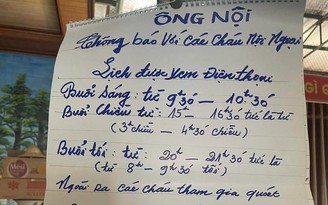 ÔNG NỘI
Thông báo Với Các Cháu Nội Ngoại
Lịch được xem Điện thoại
Buổi Sáng: từ 9ʰ30 – 10ʰ30
Buổi Chiều từ: 15ʰ – 16ʰ30 tức là từ
(3ʰ chiều – 4ʰ30 chiều)
Buổi tối: từ 20ʰ – 21ʰ30 tức là
(từ 8ʰ – 9ʰ30 tối)
Ngoài ra các cháu tham gia quét